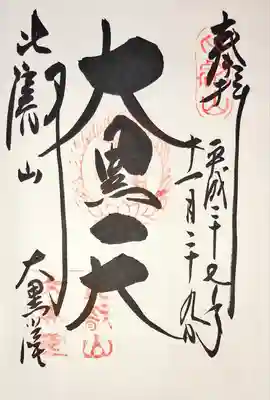 奉拝
平成二十九年
十一月二十九日
大黒天
比叡山
大黒堂